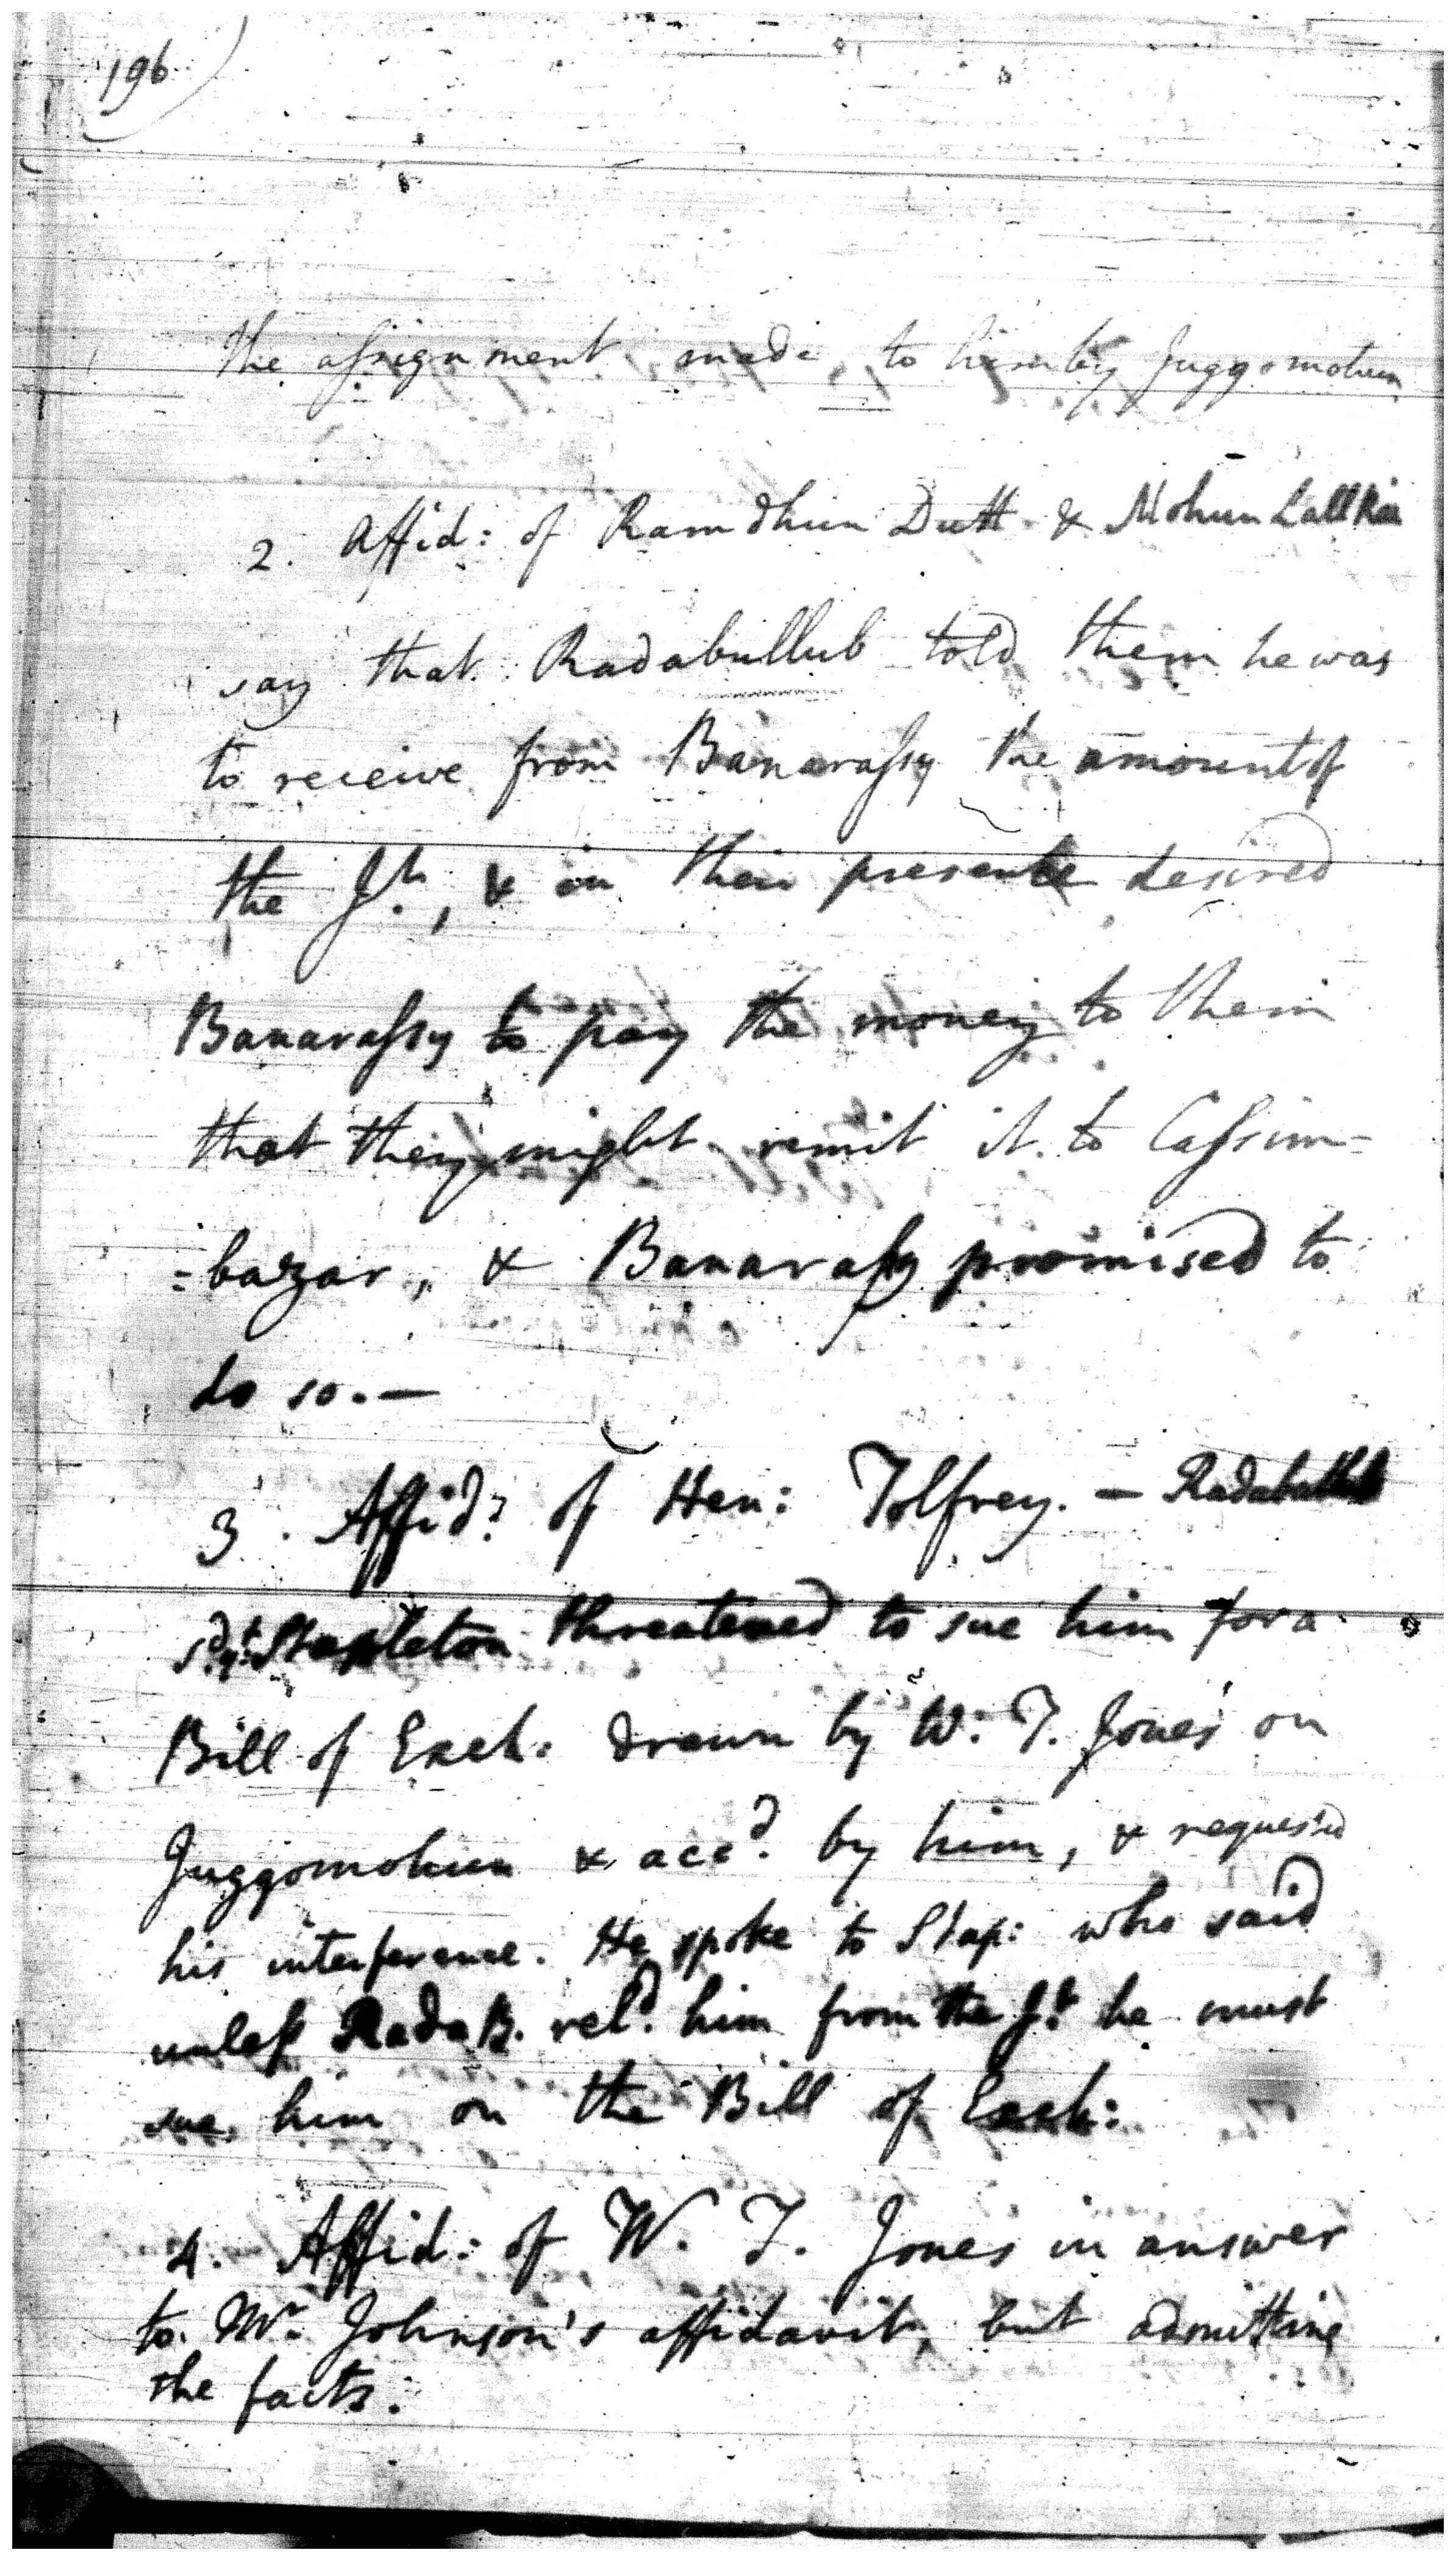 196
the assignment made to him by Juggomohun
2. Affid: of Ramdhun Dutt & Mohun Lall
say that Radabullub told them he was
to receive from Banarassy the amount of
the Jt., & in their presence desired
Banarassy to pay the money to them
that they might remit it to Cassim=
=bazar, & Banarassy promised to
do so. —
3. Affidt. of Hen: Tolfrey. — Radabullub
sd. yt. Stapleton threatened to sue him for a
Bill of Exch. drawn by W. T. Jones on
Juggomohun & accd. by him, & requested
his interference. He spoke to Stap: who said
unless Rada B. reld. him from the Jt. he must
sue him on the Bill of Exch:
4. Affid: of W. T. Jones in answer
to Mr. Johnson's affidavit, but admitting
the facts.